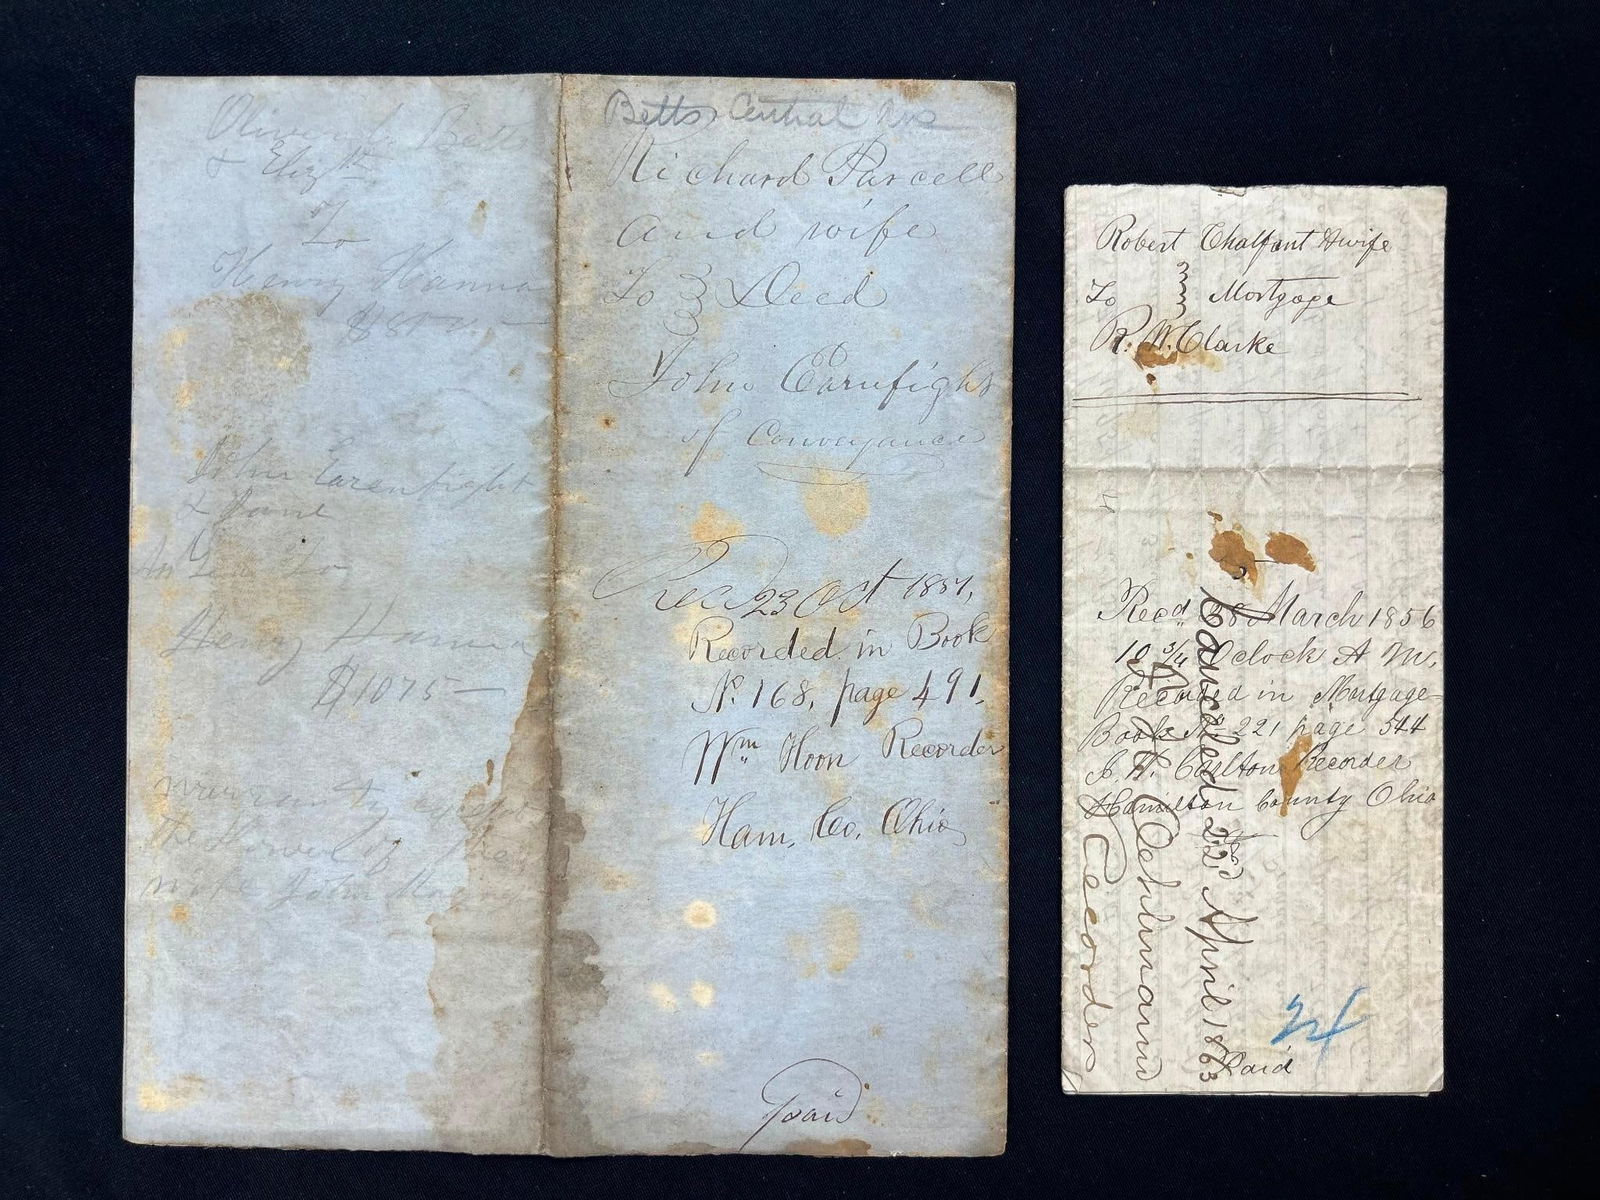 Oliver Betts
& Eliz'th
To
Henry Hanna
John Earenfight
& Jane
To
Henry Hanna
$1075—
warranty except
the Dower of the
wife John
Betts Central Ave
Richard Parcell
and wife
To Deed
John Earnfight
of Conveyance
Rec'd 23 Oct 1851,
Recorded in Book
No. 168, page 491,
Wm Hoon Recorder
Ham, Co, Ohio
paid
Robert Chalfant & wife
To Mortgage
R. W. Clarke
Recd 28 March 1856
10 3/4 Oclock A M,
Recorded in Mortgage
Book No 221 page 544
Carlton Recorder
Hamilton County Ohio
Cancelled 22d April 1863
Oehlmann
Recorder
Paid